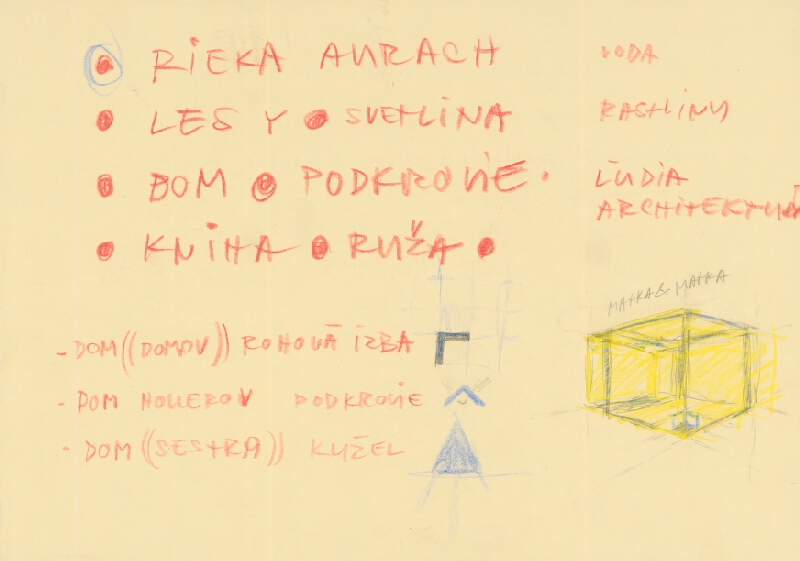 RIEKA AURACH VODA
LESY SVETLINA RASTLINY
BOM PODKROVIE. ĽUDIA
ARCHITEKTÚRA
KNIHA RUŽA
MATKA & MATKA
- DOM ((DOMOV)) ROHOVÁ IZBA
- DOM HOLLEROV PODKROVIE
- DOM ((SESTRA)) KUŽEL